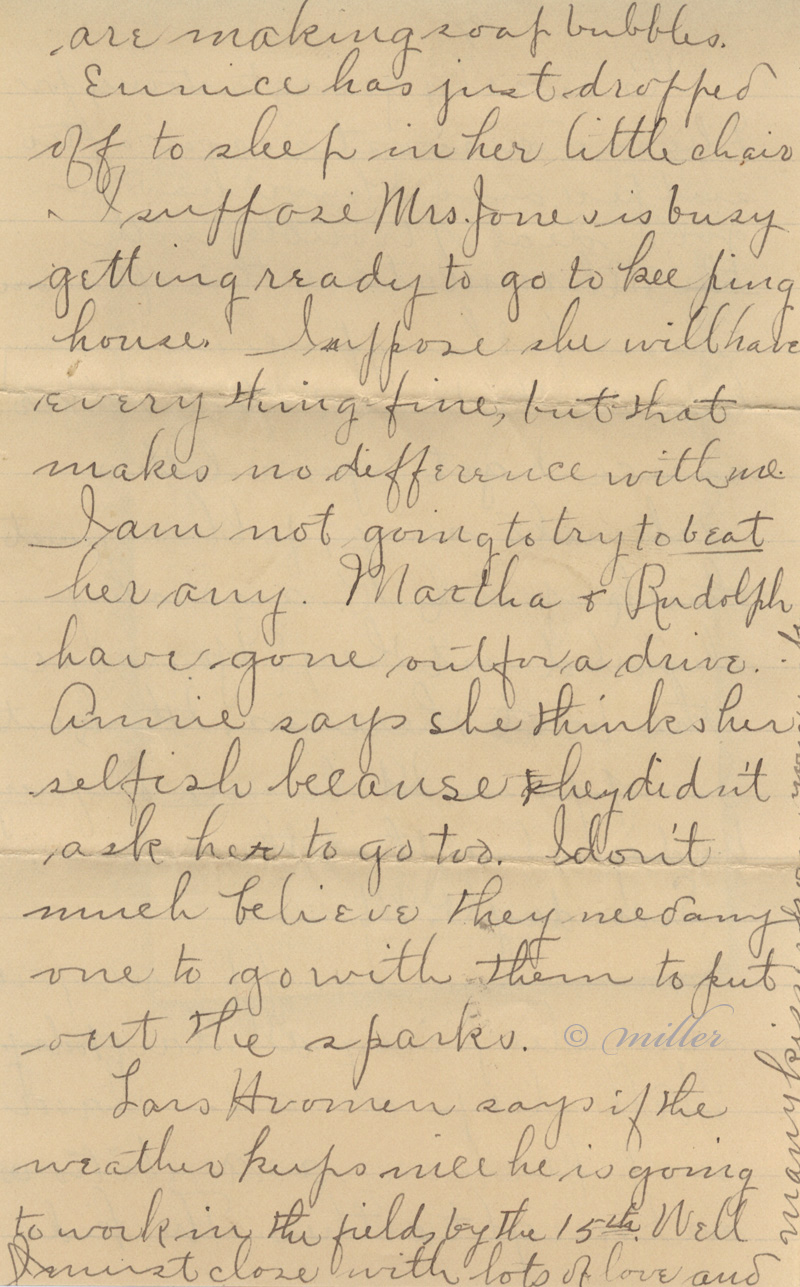 are making soap bubbles.
Eunice has just dropped
off to sleep in her little chair
I suppose Mrs. Jones is busy
getting ready to go to keeping
house. I suppose she will have
every thing fine, but that
makes no difference with me.
I am not going to try to beat
her any. Martha & Rudolph
have gone out for a drive.
Annie says she thinks her
selfish because they didn't
ask her to go too. I don't
much believe they need any
one to go with them to put
out the sparks.
© miller
Lars says if the
weather keeps nice he is going
to work in the fields by the 15th. Well
I must close with lots of love and
many kisses